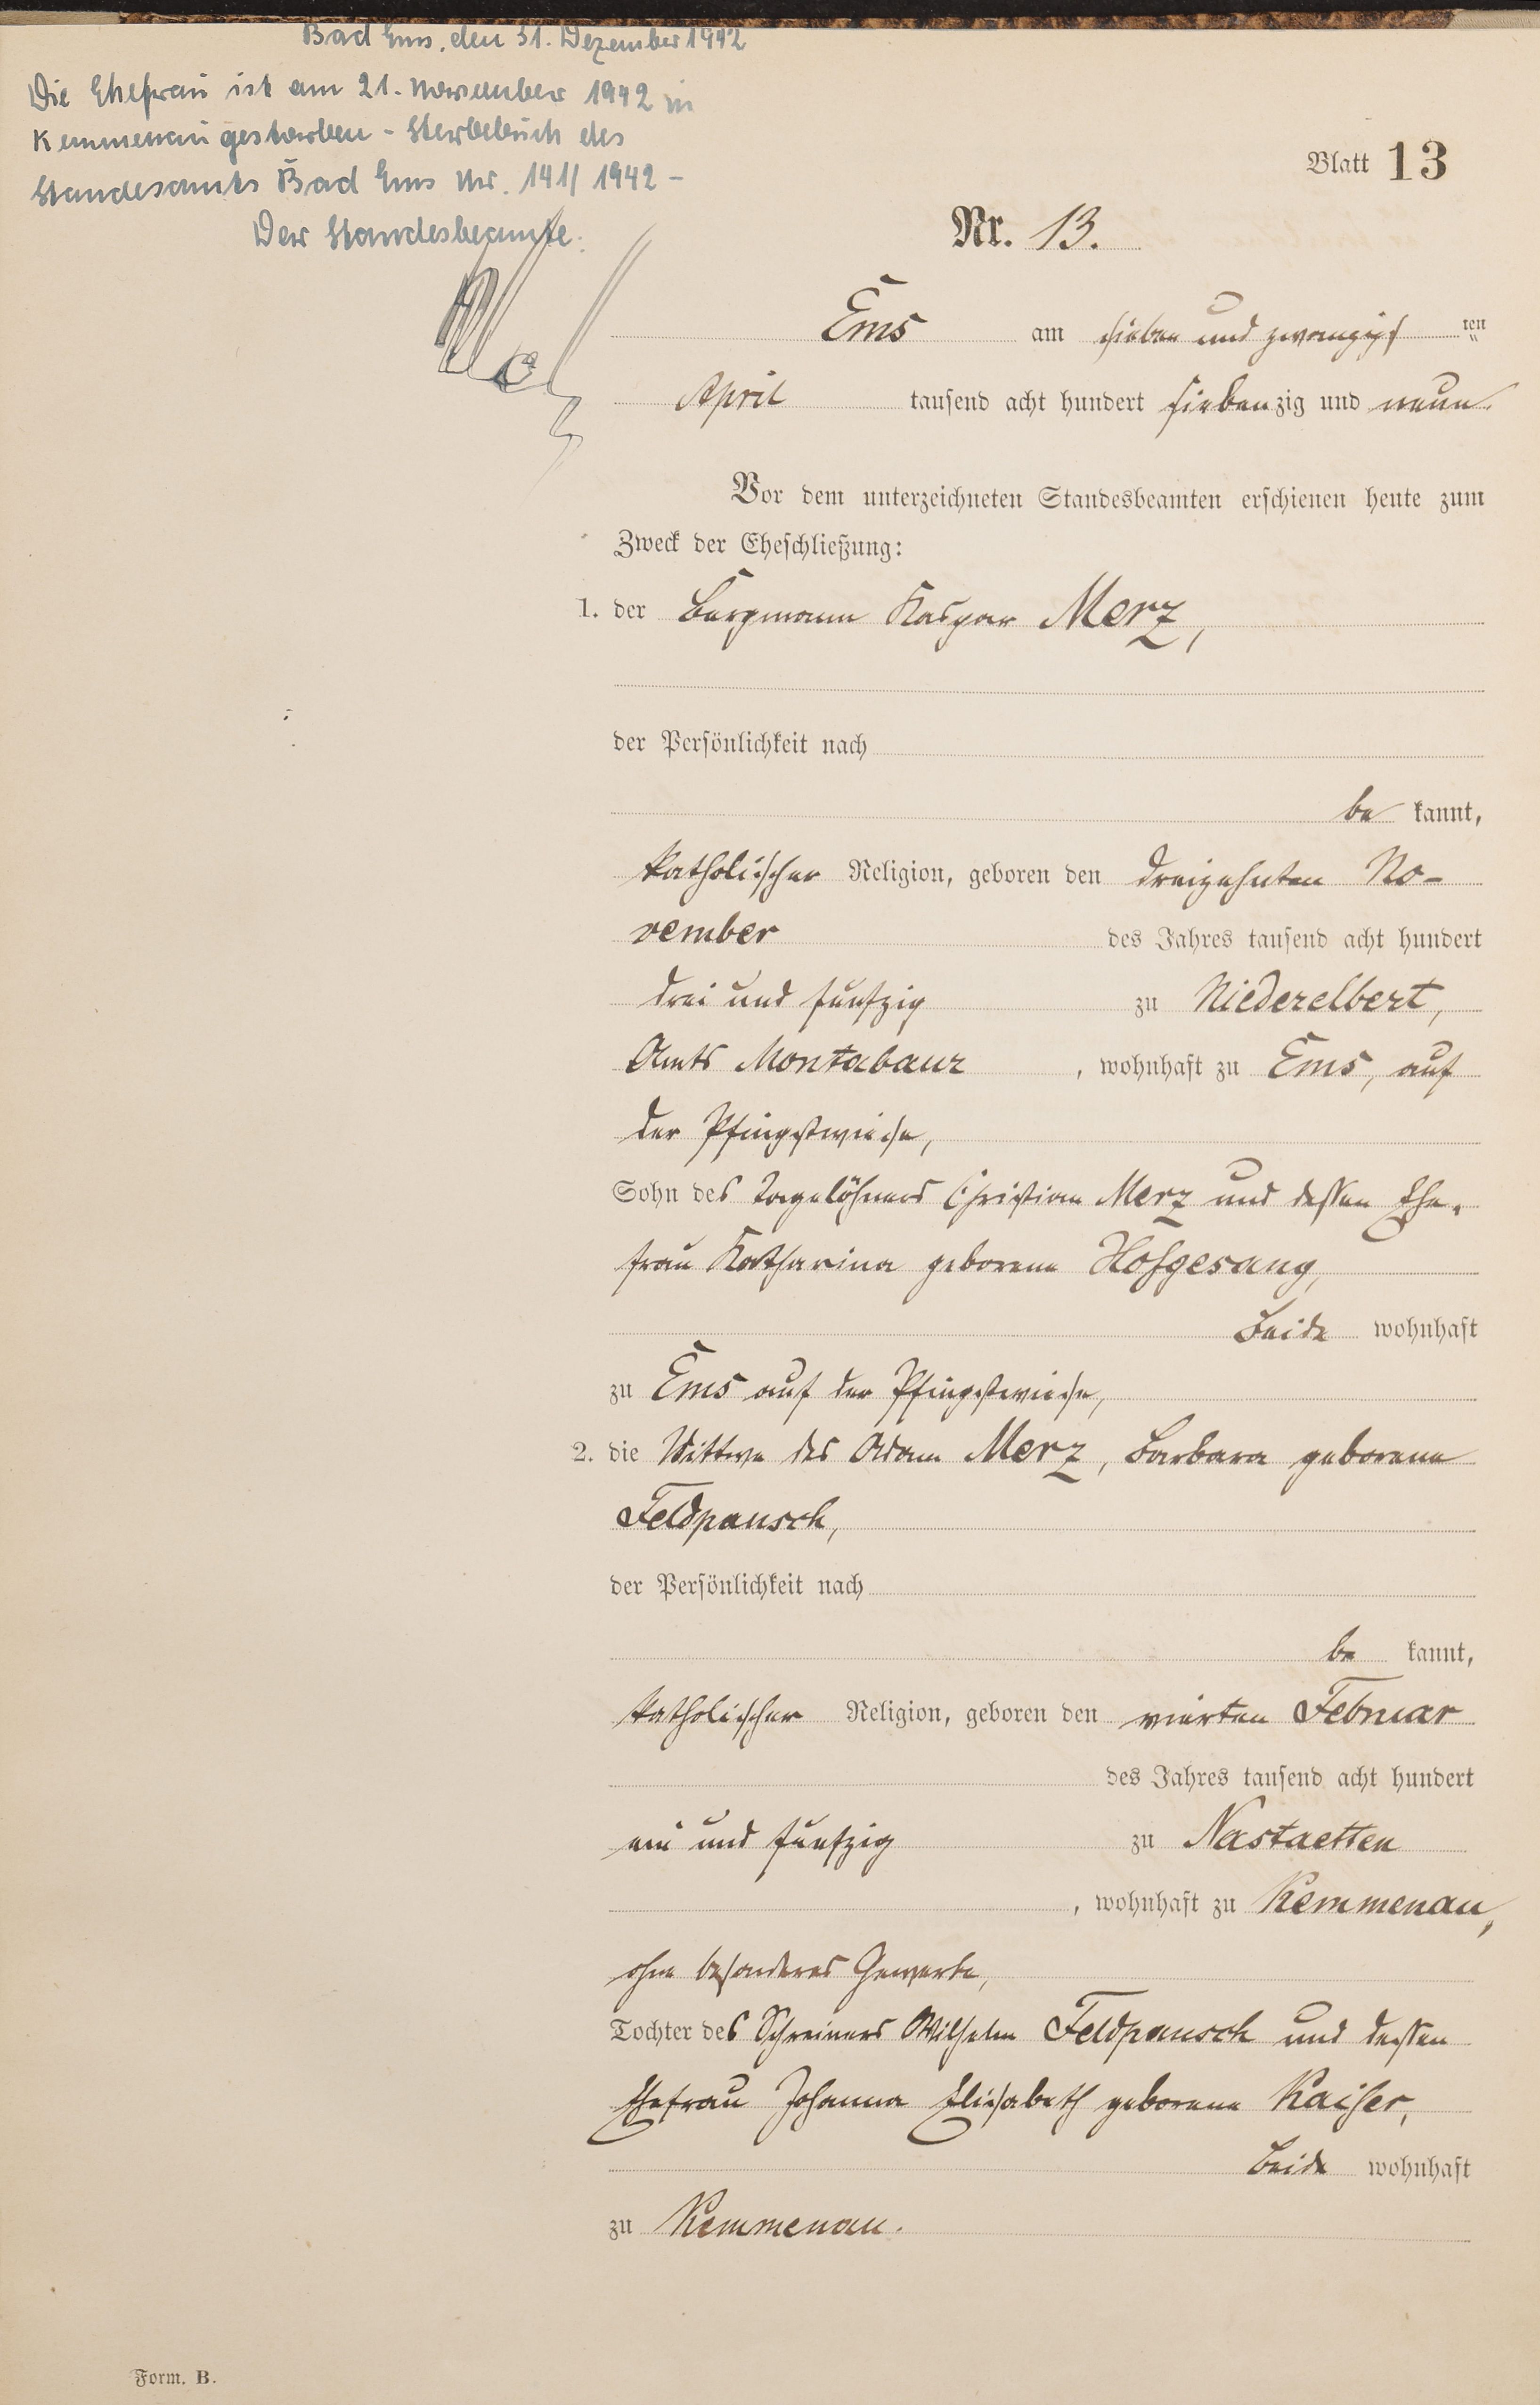 Bad Ems, den 31. Dezember 1942
Die Ehefrau ist am 21. November 1942 in
Kemmenau gestorben - Sterbebuch des
Standesamts Bad Ems Nr. 141/1942 -
Der Standesbeamte:
Blatt 13
Nr. 13.
Ems am sieben und zwanzigsten
April tausend acht hundert siebenzig und neun.
Vor dem unterzeichneten Standesbeamten erschienen heute zum
Zweck der Eheschließung:
1. der Bergmann Kaspar Merz,
der Persönlichkeit nach
be kannt,
katholischer Religion, geboren den dreizehnten No-
vember des Jahres tausend acht hundert
drei und fünfzig zu Niederelbert,
Amts Montabaur, wohnhaft zu Ems, auf
der Pfingstwiese,
Sohn des Tagelöhners Christian Merz und dessen Ehe-
frau Katharina geborene Hofgesang,
beide wohnhaft
zu Ems auf der Pfingstwiese,
2. die Wittwe des Adam Merz, Barbara geborene
Feldpausch,
der Persönlichkeit nach
be kannt,
katholischer Religion, geboren den vierten Februar
des Jahres tausend acht hundert
ein und fünfzig zu Nastaetten
, wohnhaft zu Kemmenau,
ohne besonderes Gewerbe,
Tochter des Schreiners Wilhelm Feldpausch und dessen
Ehefrau Johanna Elisabeth geborene Kaiser,
beide wohnhaft
zu Kemmenau.
Form. B.